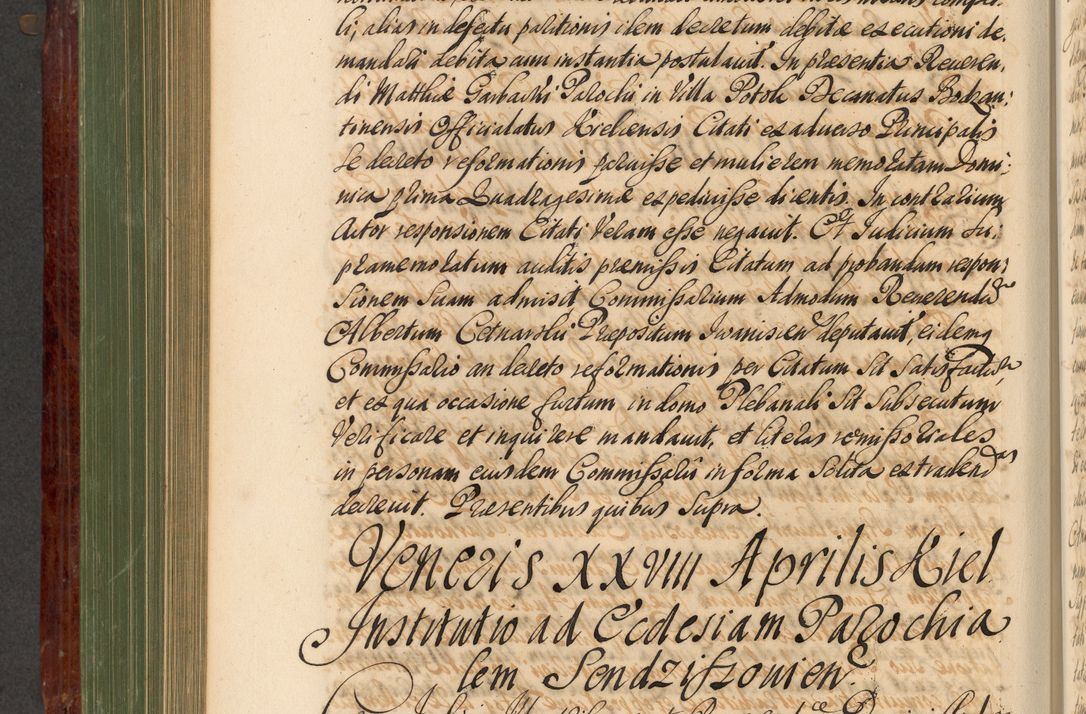 li, alias in defectu paritionis idem decretum debitæ executioni de,
mandari debita cum instantia postulavit. In præsentia Reveren,
di Matthiæ Garbacki Parochi in Villa Potok Decanatus Bodzan:
tinensis Officialatus Kielcensis Citati ex adverso Principalis
se decreto reformationis paruisse et mulierem memoratam Domi:
nica prima Quadragesimæ expedivisse dicentis. In contrarium
Actor responsionem Citati veram esse negavit. Et Judicium Su:
pramemoratum auditis præmissis Citatum ad probandum respon:
sionem suam admisit Commissarium Admodum Reverendũ
Albertum Cetnarski Præpositum Iwanisceñ deputavit, eidemq
Commissario an decreto reformationis per Citatum sit satisfactum
et ex qua occasione furtum in domo Plebanali sit subsecutum
verificare et inquirere mandavit, et literas remissoriales
in personam eiusdem Commissarii in forma solita extradendas
decrevit. Præsentibus quibus supra.
Veneris XXVIII Aprilis Kiel
Institutio ad Ecclesiam Parochia
lem Sendziszovien